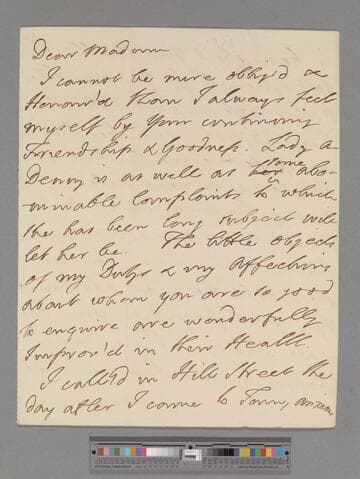 Dear Madam
I cannot be more oblig'd &
Honour'd than I always feel
myself by Your continuing
Friendship & Goodness. Lady A-
Denny is as well as some abo-
minable Complaints to which
she has been long subject will
let her be. The little Objects
of my Dutys & my Affections
about whom you are so good
to enquire are wonderfully
Improv'd in their Health.
I call'd in Hill Street the
day after I came to Town,